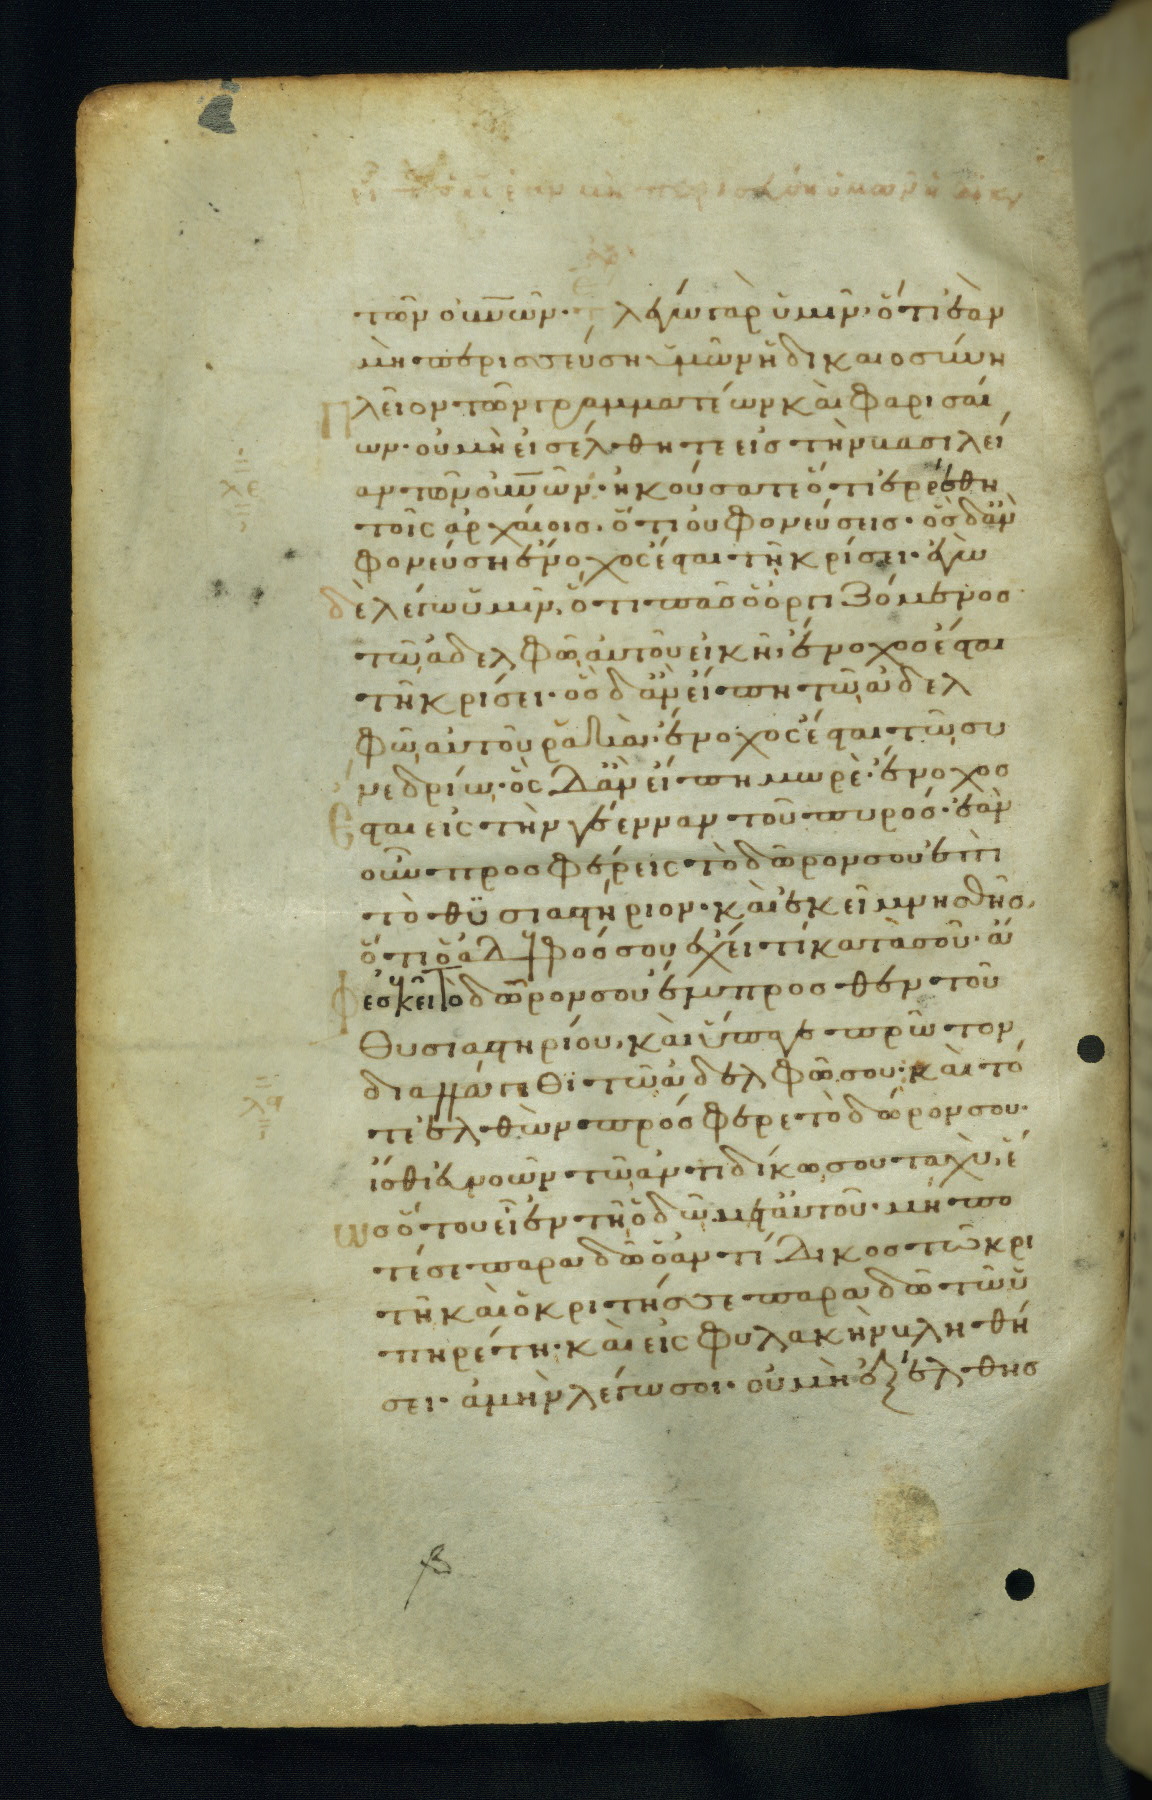 τῶν οὐνῶν· λέγω γὰρ ὑμῖν· ὅτι ἐὰν
μὴ περισσεύση ὑμῶν ἡ δικαιοσύνη
πλεῖον τῶν γραμματέων καὶ φαρισαί
ων· οὐ μὴ εἰσέλθητε εἰς τὴν βασιλεί
αν τῶν οὐνῶν· ἠκούσατε ὅτι ἐρρέθη
τοῖς ἀρχαίοις· ὅτι οὐ φονεύσεις· ὃς δ' ἂν
φονεύση ἔνοχος ἔσται τῆ κρίσει· ἐγὼ
δὲ λέγω ὑμῖν, ὅτι πᾶς ὁ ὀργιζόμενος
τῶ ἀδελφῶ αὐτοῦ εἰκῆ, ἔνοχος ἔσται
τῆ κρίσει· ὃς δ' ἂν εἴπη τῶ ἀδελ
φῶ αὐτοῦ ῥακὰ· ἔνοχος ἔσται τῶ συ
νεδρίω· ὃς δ' ἂν εἴπη μωρὲ· ἔνοχος
ἔσται εἰς τὴν γέενναν τοῦ πυρός· ἐὰν
οὖν προσφέρεις τὸ δῶρον σου ἐπὶ
τὸ θυσιαστήριον· καὶ ἐκεῖ μνησθῆς,
ὅτι ὁ ἀδλφός σου ἔχει τί κατὰ σοῦ· ἄ
φες ἐκεῖ τὸ δῶρον σου ἔμπροσθεν τοῦ
θυσιαστηρίου, καὶ ὕπαγε πρῶτον
διαλλάγηθι τῶ ἀδελφῶ σου· καὶ τό
τε ἐλθὼν πρόσφερε τὸ δῶρον σου·
ἴσθι εὐνοῶν τῶ ἀντιδίκω σου ταχὺ, ἕ
ως ὅτου εἶ ἐν τῆ ὁδῶ μετ' αὐτοῦ· μή πο
τέ σε παραδῶ ὁ ἀντίδικος τῶ κρι
τῆ καὶ ὁ κριτής σε παραδῶ τῶ ὑ
πηρέτη· καὶ εἰς φυλακὴν βληθή
σει· ἀμὴν λέγω σοι· οὐ μὴ ἐξέλθης